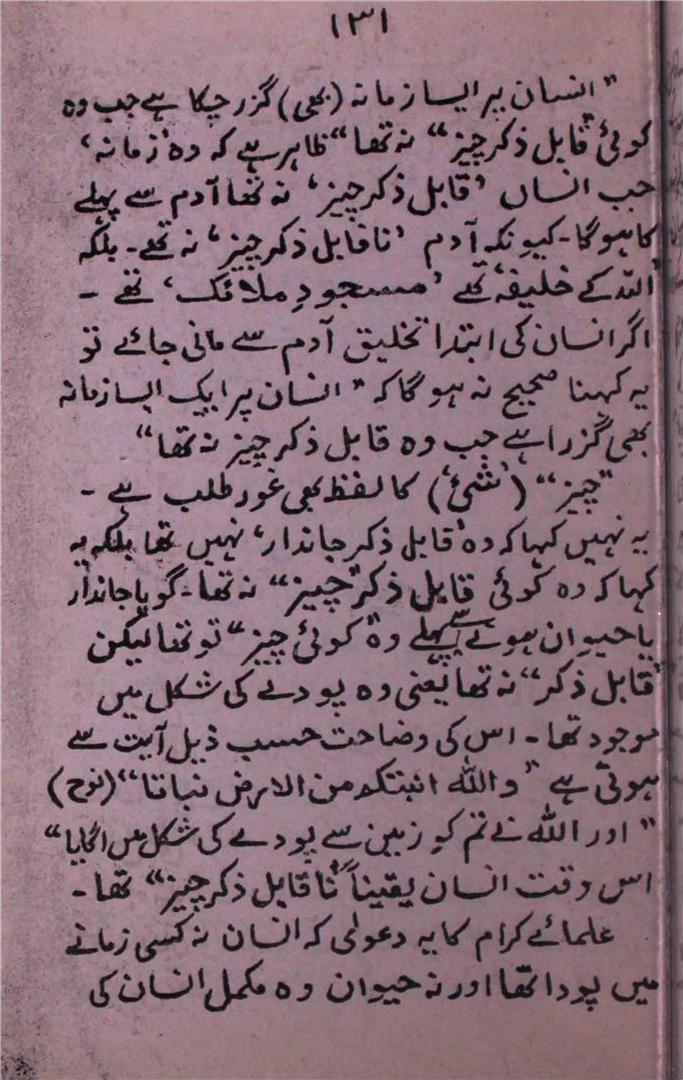 ۱۳۱
"انسان پر ایسا زمانہ (بھی) گزر چکا ہے جب وہ
کوئی "قابل ذکر چیز" نہ تھا" ظاہر ہے کہ وہ 'زمانہ'
جب انساں 'قابل ذکر چیز' نہ تھا آدم سے پہلے
کا ہو گا۔ کیونکہ آدم 'ناقابل ذکر چیز' نہ تھے۔ بلکہ
'اللہ کے خلیفہ' تھے 'مسجودِ ملائک' تھے ۔
اگر انسان کی ابتدا تخلیق آدم سے مانی جائے تو
یہ کہنا صحیح نہ ہو گا کہ "انسان پر ایک ایسا زمانہ
بھی گزرا ہے جب وہ قابل ذکر چیز نہ تھا"
"چیز" ('شئ') کا لفظ بھی غور طلب ہے ۔
یہ نہیں کہا کہ وہ 'قابل ذکر جاندار' نہیں تھا بلکہ یہ
کہا کہ وہ کوئی قابل ذکر "چیز" نہ تھا۔ گویا جاندار
یا حیوان ہونے سے پہلے وہ "کوئی چیز" تو تھا لیکن
"قابل ذکر" نہ تھا یعنی وہ پودے کی شکل میں
موجود تھا۔ اس کی وضاحت حسب ذیل آیت سے
ہوتی ہے "واللہ انبتکم من الارض نباتا" (نوح)
"اور اللہ نے تم کو زمین سے پودے کی شکل میں اگایا"
اس وقت انسان یقیناً "ناقابل ذکر چیز" تھا۔
علمائے کرام کا یہ دعویٰ کہ انسان نہ کسی زمانے
میں پودا تھا اور نہ حیوان وہ مکمل انسان کی